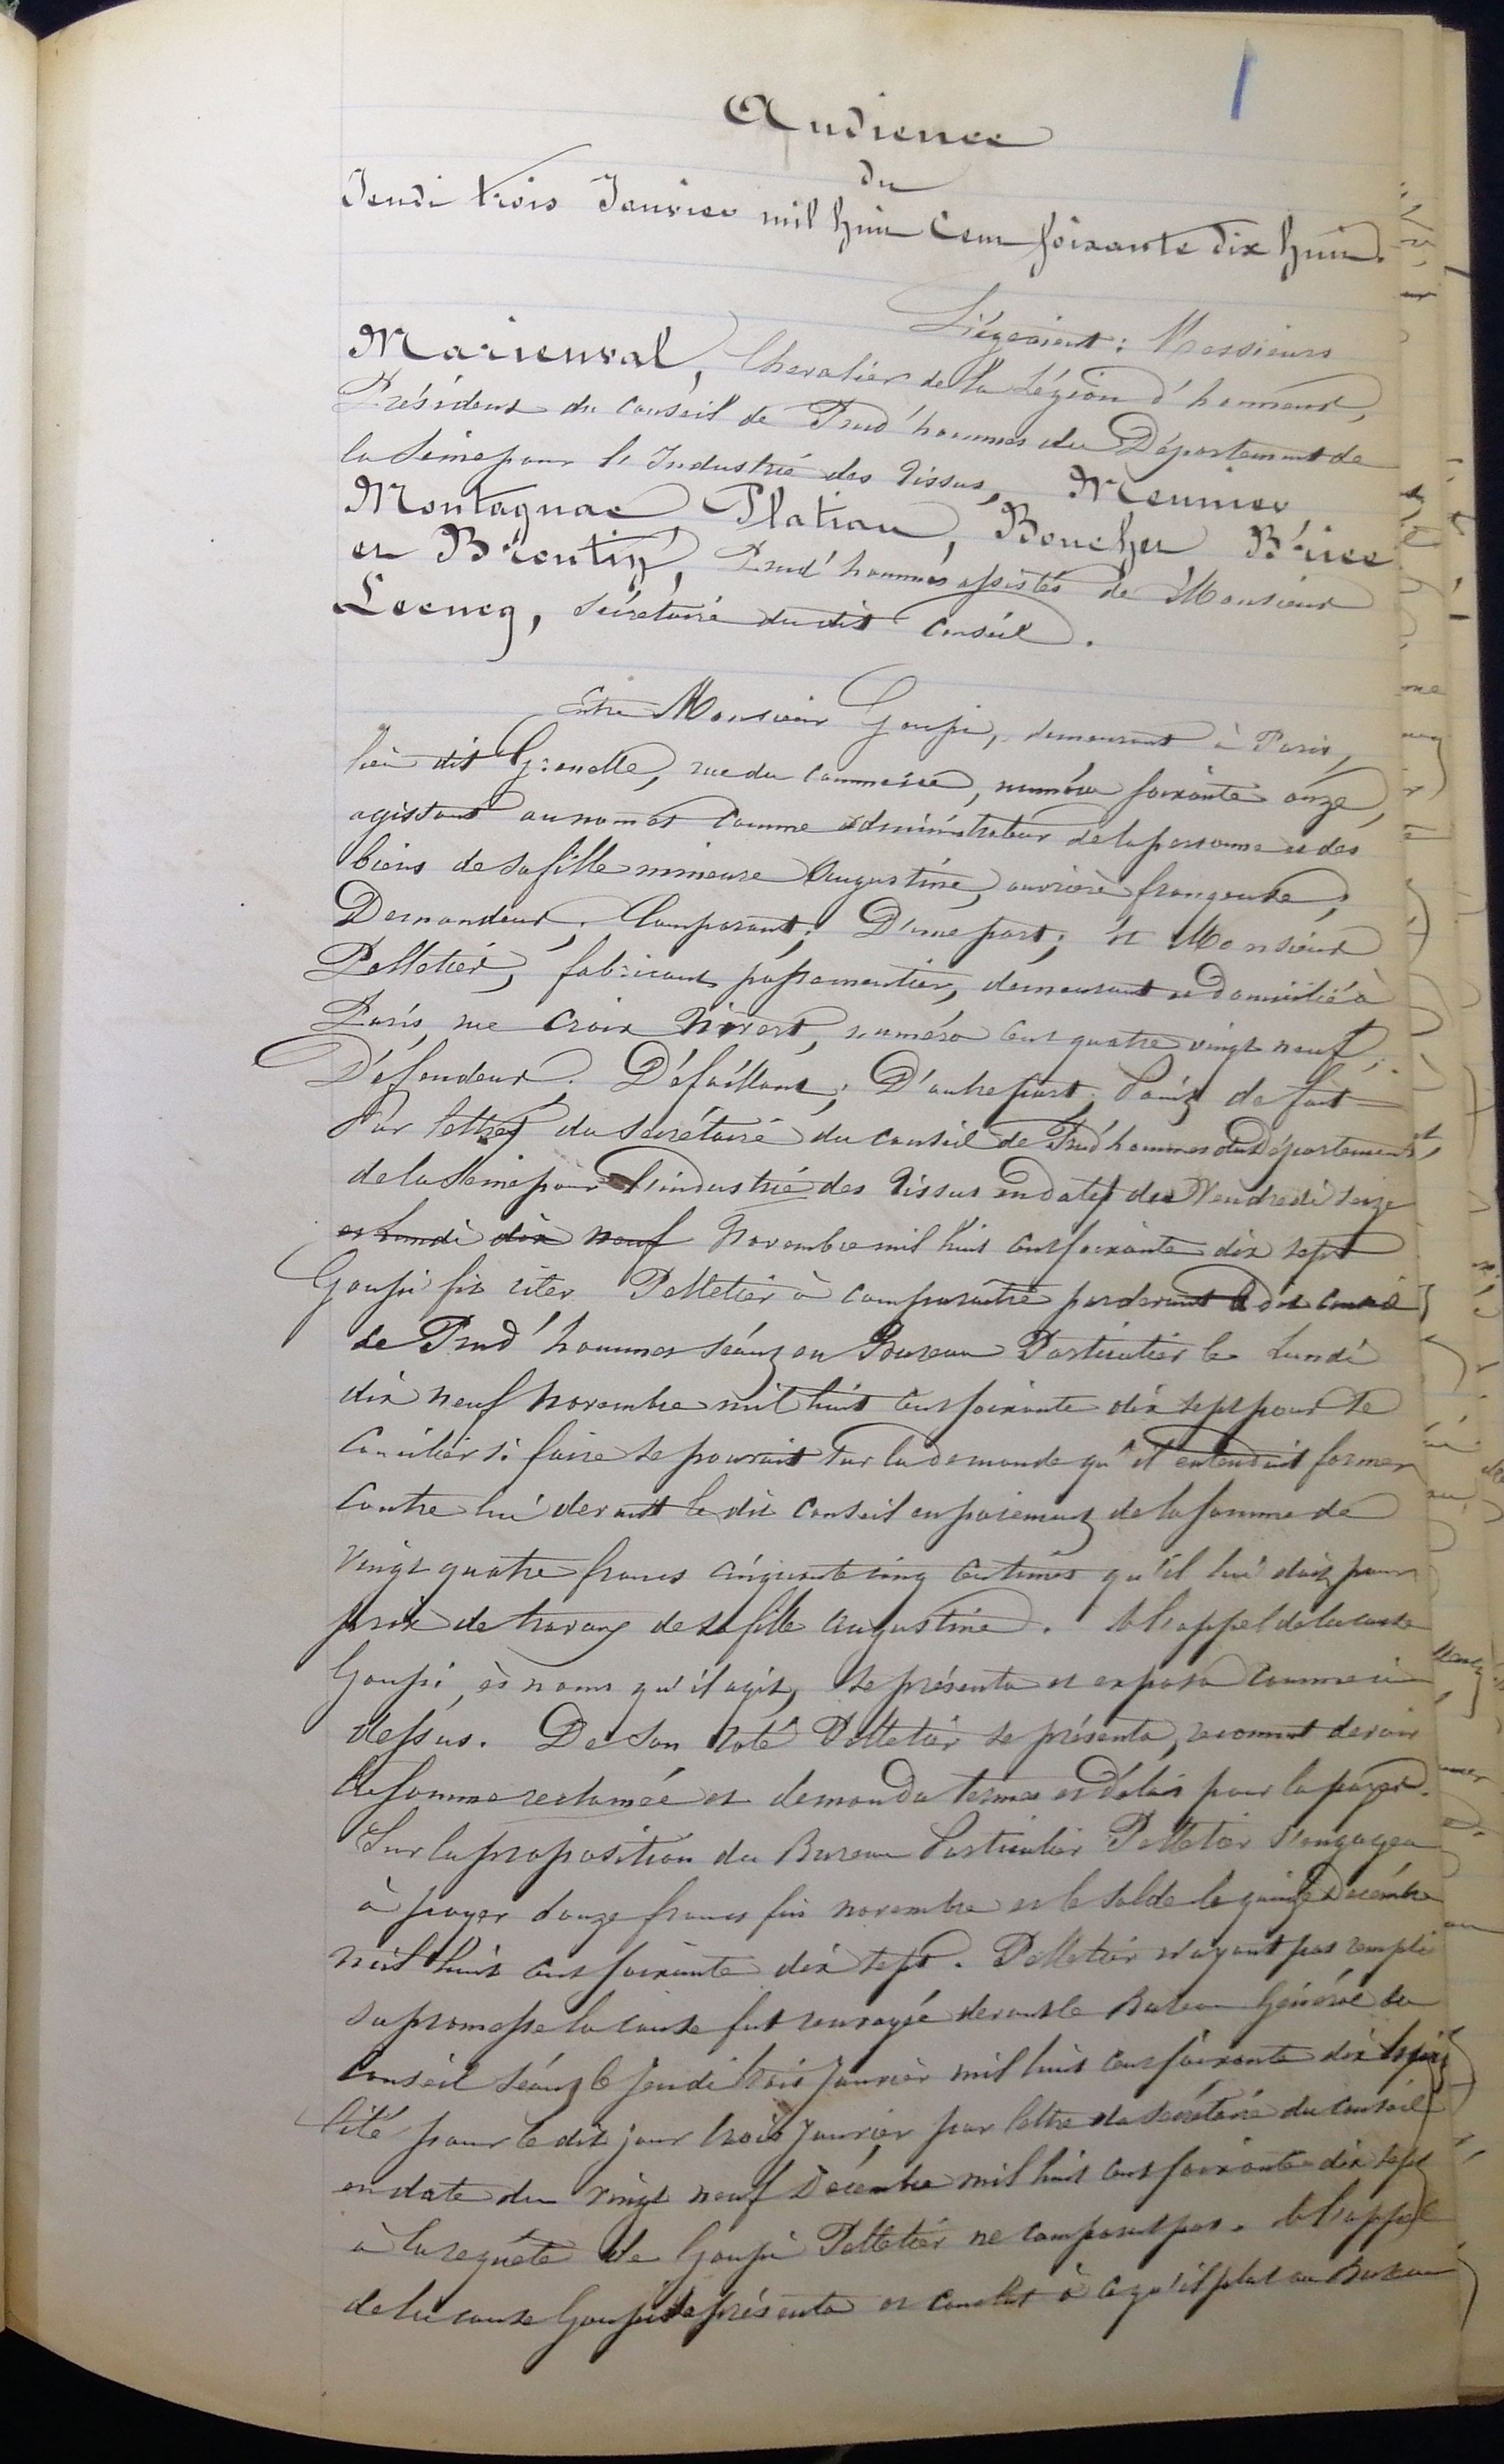 1
Audience
du
Jeudi trois Janvier mil huit cent soixante dix huit.
Siégeaient : Messieurs
Marienval, Chevalier de la Légion d'honneur,
Président du Conseil de Prud'hommes du Département de
la Seine pour l'Industrie des Tissus, Meunier
Montagnac Platiau, Boucher Brice
et Brentin, Prud'hommes assistés de Monsieur
Lecucq, Secrétaire dudit Conseil.
Entre Monsieur Goupi, demeurant à Paris,
lieu dit Grenelle, rue du Commerce, numéro soixante onze,
agissant au nom et comme administrateur de la personne et des
biens de sa fille mineure Augustine, ouvrière frangeuse ;
Demandeur, Comparant ; D'une part ; Et Monsieur
Pelletier, fabricant passementier, demeurant et domicilié à
Paris, rue Croix Nivert, numéro cent quatre vingt neuf ;
Défendeur. Défaillant ; D'autre part. Point de fait
Par lettres du Secrétaire du Conseil de Prud'hommes du Département,
de la Seine pour l'industrie des Tissus en dates du Vendredi seize
et Lundi dix neuf Novembre mil huit cent soixante dix sept
Goupi fit citer Pelletier à comparaître par devant le dit Conseil
de Prud'hommes séant en Bureau Particulier le Lundi
dix neuf Novembre mil huit cent soixante dix sept pour se
concilier si faire se pouvait sur la demande qu'il entendait former
contre lui devant le dit Conseil en paiement de la somme de
vingt quatre francs cinquante cinq centimes qu'il lui doit pour
prix de travaux de sa fille Augustine. A l'appel de la cause
Goupi, ès noms qu'il agit, se présenta et exposa comme ci
dessus. De son côté Pelletier se présenta, reconnut devoir
la somme réclamée et demanda termes et délais pour la payer.
Sur la proposition du Bureau Particulier Pelletier s'engagea
à payer douze francs fin novembre et le solde le quinze Décembre
mil huit cent soixante dix sept. Pelletier n'ayant pas rempli
sa promesse la cause fut renvoyée devant le Bureau Général du
Conseil séant le Jeudi trois Janvier mil huit cent soixante dix
Cité pour le dit jour trois Janvier par lettre du Secrétaire du Conseil
en date du vingt neuf Décembre mil huit cent soixante dix sept
à la requête de Goupi Pelletier ne comparut pas. A l'appel
de la cause Goupi se présenta et conclut à ce qu'il plut au Bureau